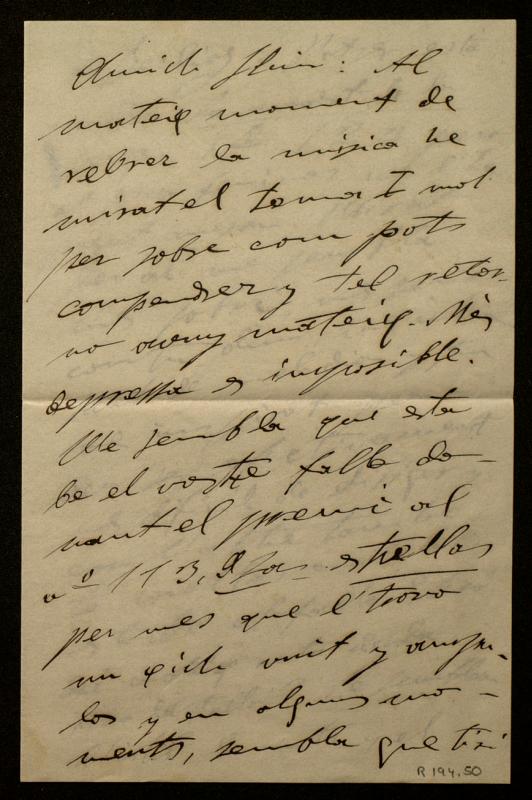 Amich Lluis: Al
mateix moment de
rebrer la musica he
mirat el tema I mol
per sobre com pots
compendrer y tel retor-
no avuy mateix. Més
depressa es imposible.
Me sembla que esta
be el vostre fallo do-
nant el premi al
nº 113, Las estrellas
per mes que l'trovo
un xich vuit y ampu-
los y en alguns mo-
ments, sembla que tisi
R 194.50